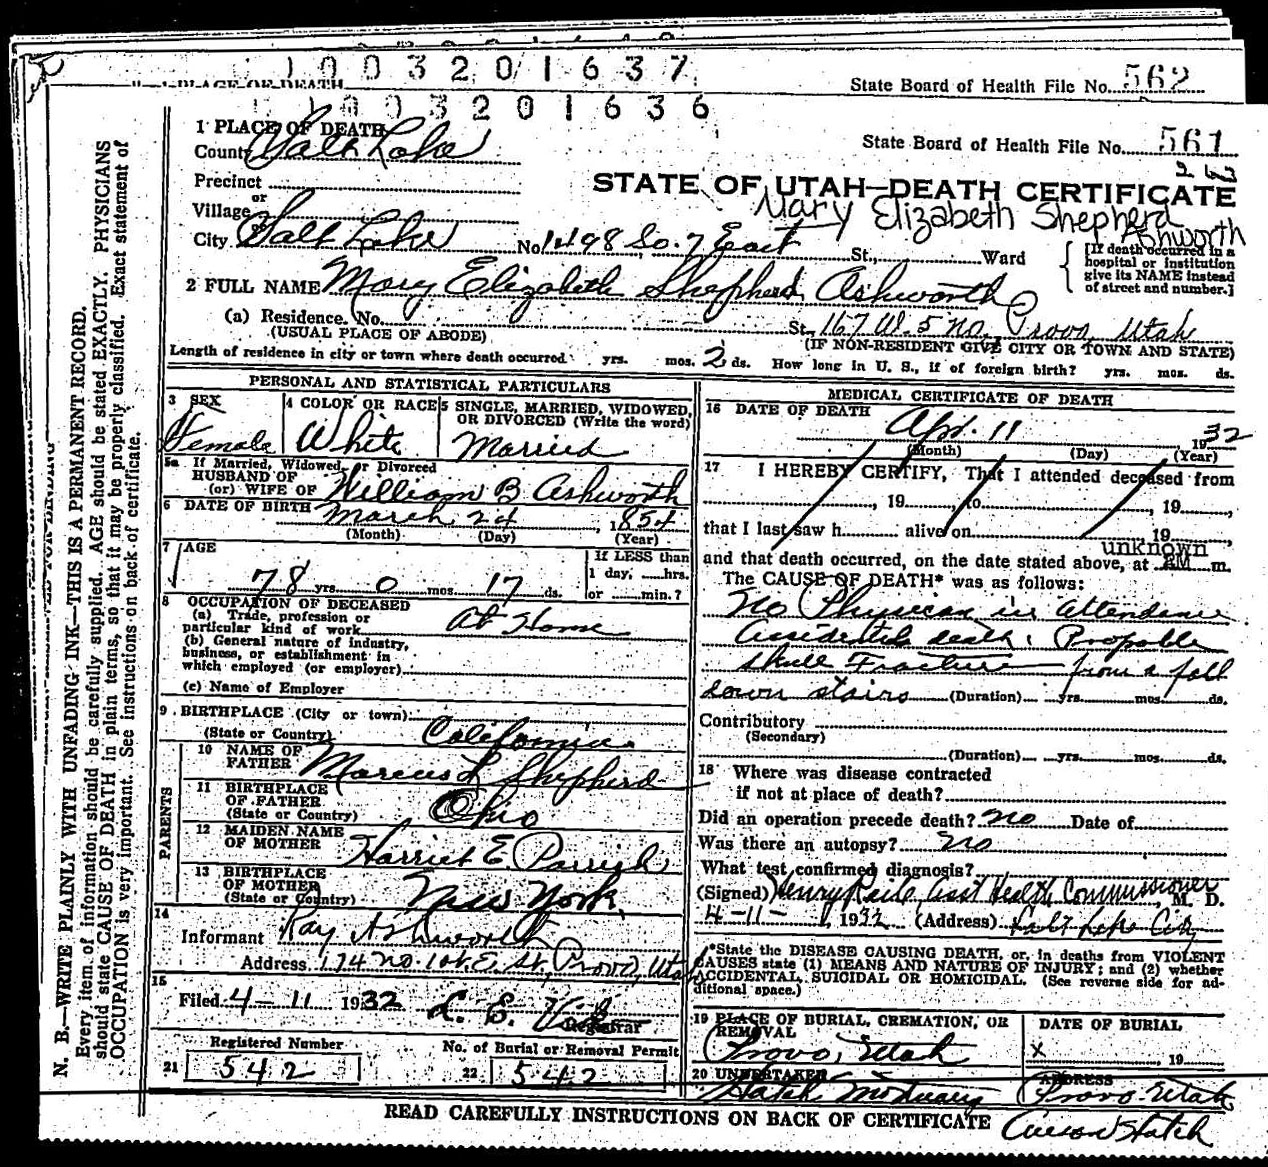 1 0 0 3 2 0 1 6 3 7
PLACE OF DEATH
State Board of Health File No. 562
1 0 0 3 2 0 1 6 3 6
1 PLACE OF DEATH
County Salt Lake
State Board of Health File No. 561
Precinct
STATE OF UTAH—DEATH CERTIFICATE
or
Village
Mary Elizabeth Shepherd
Ashworth
City Salt Lake No. 1498 So. 7 East St., Ward
[If death occurred in a hospital or institution give its NAME instead of street and number.]
2 FULL NAME Mary Elizabeth Shepherd Ashworth
(a) Residence. No. St., 167 W. 5 No. Provo, Utah
(USUAL PLACE OF ABODE) (IF NON-RESIDENT GIVE CITY OR TOWN AND STATE)
Length of residence in city or town where death occurred yrs. mos. 2 ds. How long in U. S., if of foreign birth? yrs. mos. ds.
PERSONAL AND STATISTICAL PARTICULARS
3 SEX
Female
4 COLOR OR RACE
White
5 SINGLE, MARRIED, WIDOWED, OR DIVORCED (Write the word)
Married
5a If Married, Widowed, or Divorced
HUSBAND OF
(or) WIFE OF William B Ashworth
6 DATE OF BIRTH March 24, 1854
(Month) (Day) (Year)
7 AGE
78 yrs. 0 mos. 17 ds.
If LESS than
1 day, hrs.
or min.?
8 OCCUPATION OF DECEASED
(a) Trade, profession or
particular kind of work At Home
(b) General nature of industry,
business, or establishment in
which employed (or employer)
(c) Name of Employer
9 BIRTHPLACE (City or town)
(State or Country) California
PARENTS
10 NAME OF
FATHER Marcus L Shepherd
11 BIRTHPLACE
OF FATHER
(State or Country) Ohio
12 MAIDEN NAME
OF MOTHER Harriet E. Parrish
13 BIRTHPLACE
OF MOTHER
(State or Country) New York.
14
Informant Ray Ashworth
Address 174 No. 1st E. St., Provo, Utah
15
Filed 4-11 1932
Registrar
Registered Number
21 542
No. of Burial or Removal Permit
22 542
MEDICAL CERTIFICATE OF DEATH
16 DATE OF DEATH
Apr. 11 1932
(Month) (Day) (Year)
17 I HEREBY CERTIFY, That I attended deceased from
, 19 , to , 19 ,
that I last saw h alive on , 19 ,
unknown
and that death occurred, on the date stated above, at m.
The CAUSE OF DEATH* was as follows:
No Physician in attendance
Accidental death. Propable
skull Fracture from a fall
down stairs (Duration) yrs. mos. ds.
Contributory
(Secondary)
(Duration) yrs. mos. ds.
18 Where was disease contracted
if not at place of death?
Did an operation precede death? No Date of
Was there an autopsy? No
What test confirmed diagnosis?
(Signed) Henry Asst Health Commissioner, M. D.
4-11- 1932 (Address) Salt Lake City
*State the DISEASE CAUSING DEATH, or, in deaths from VIOLENT
CAUSES state (1) MEANS AND NATURE OF INJURY; and (2) whether
ACCIDENTAL, SUICIDAL OR HOMICIDAL. (See reverse side for ad-
ditional space.)
19 PLACE OF BURIAL, CREMATION, OR
REMOVAL
Provo, Utah
DATE OF BURIAL
X , 19
20 UNDERTAKER
Hatch Mortuary
ADDRESS
Provo Utah
READ CAREFULLY INSTRUCTIONS ON BACK OF CERTIFICATE
Hatch
N. B.—WRITE PLAINLY WITH UNFADING INK—THIS IS A PERMANENT RECORD.
Every item of information should be carefully supplied. AGE should be stated EXACTLY. PHYSICIANS
should state CAUSE OF DEATH in plain terms, so that it may be properly classified. Exact statement of
OCCUPATION is very important. See instructions on back of certificate.